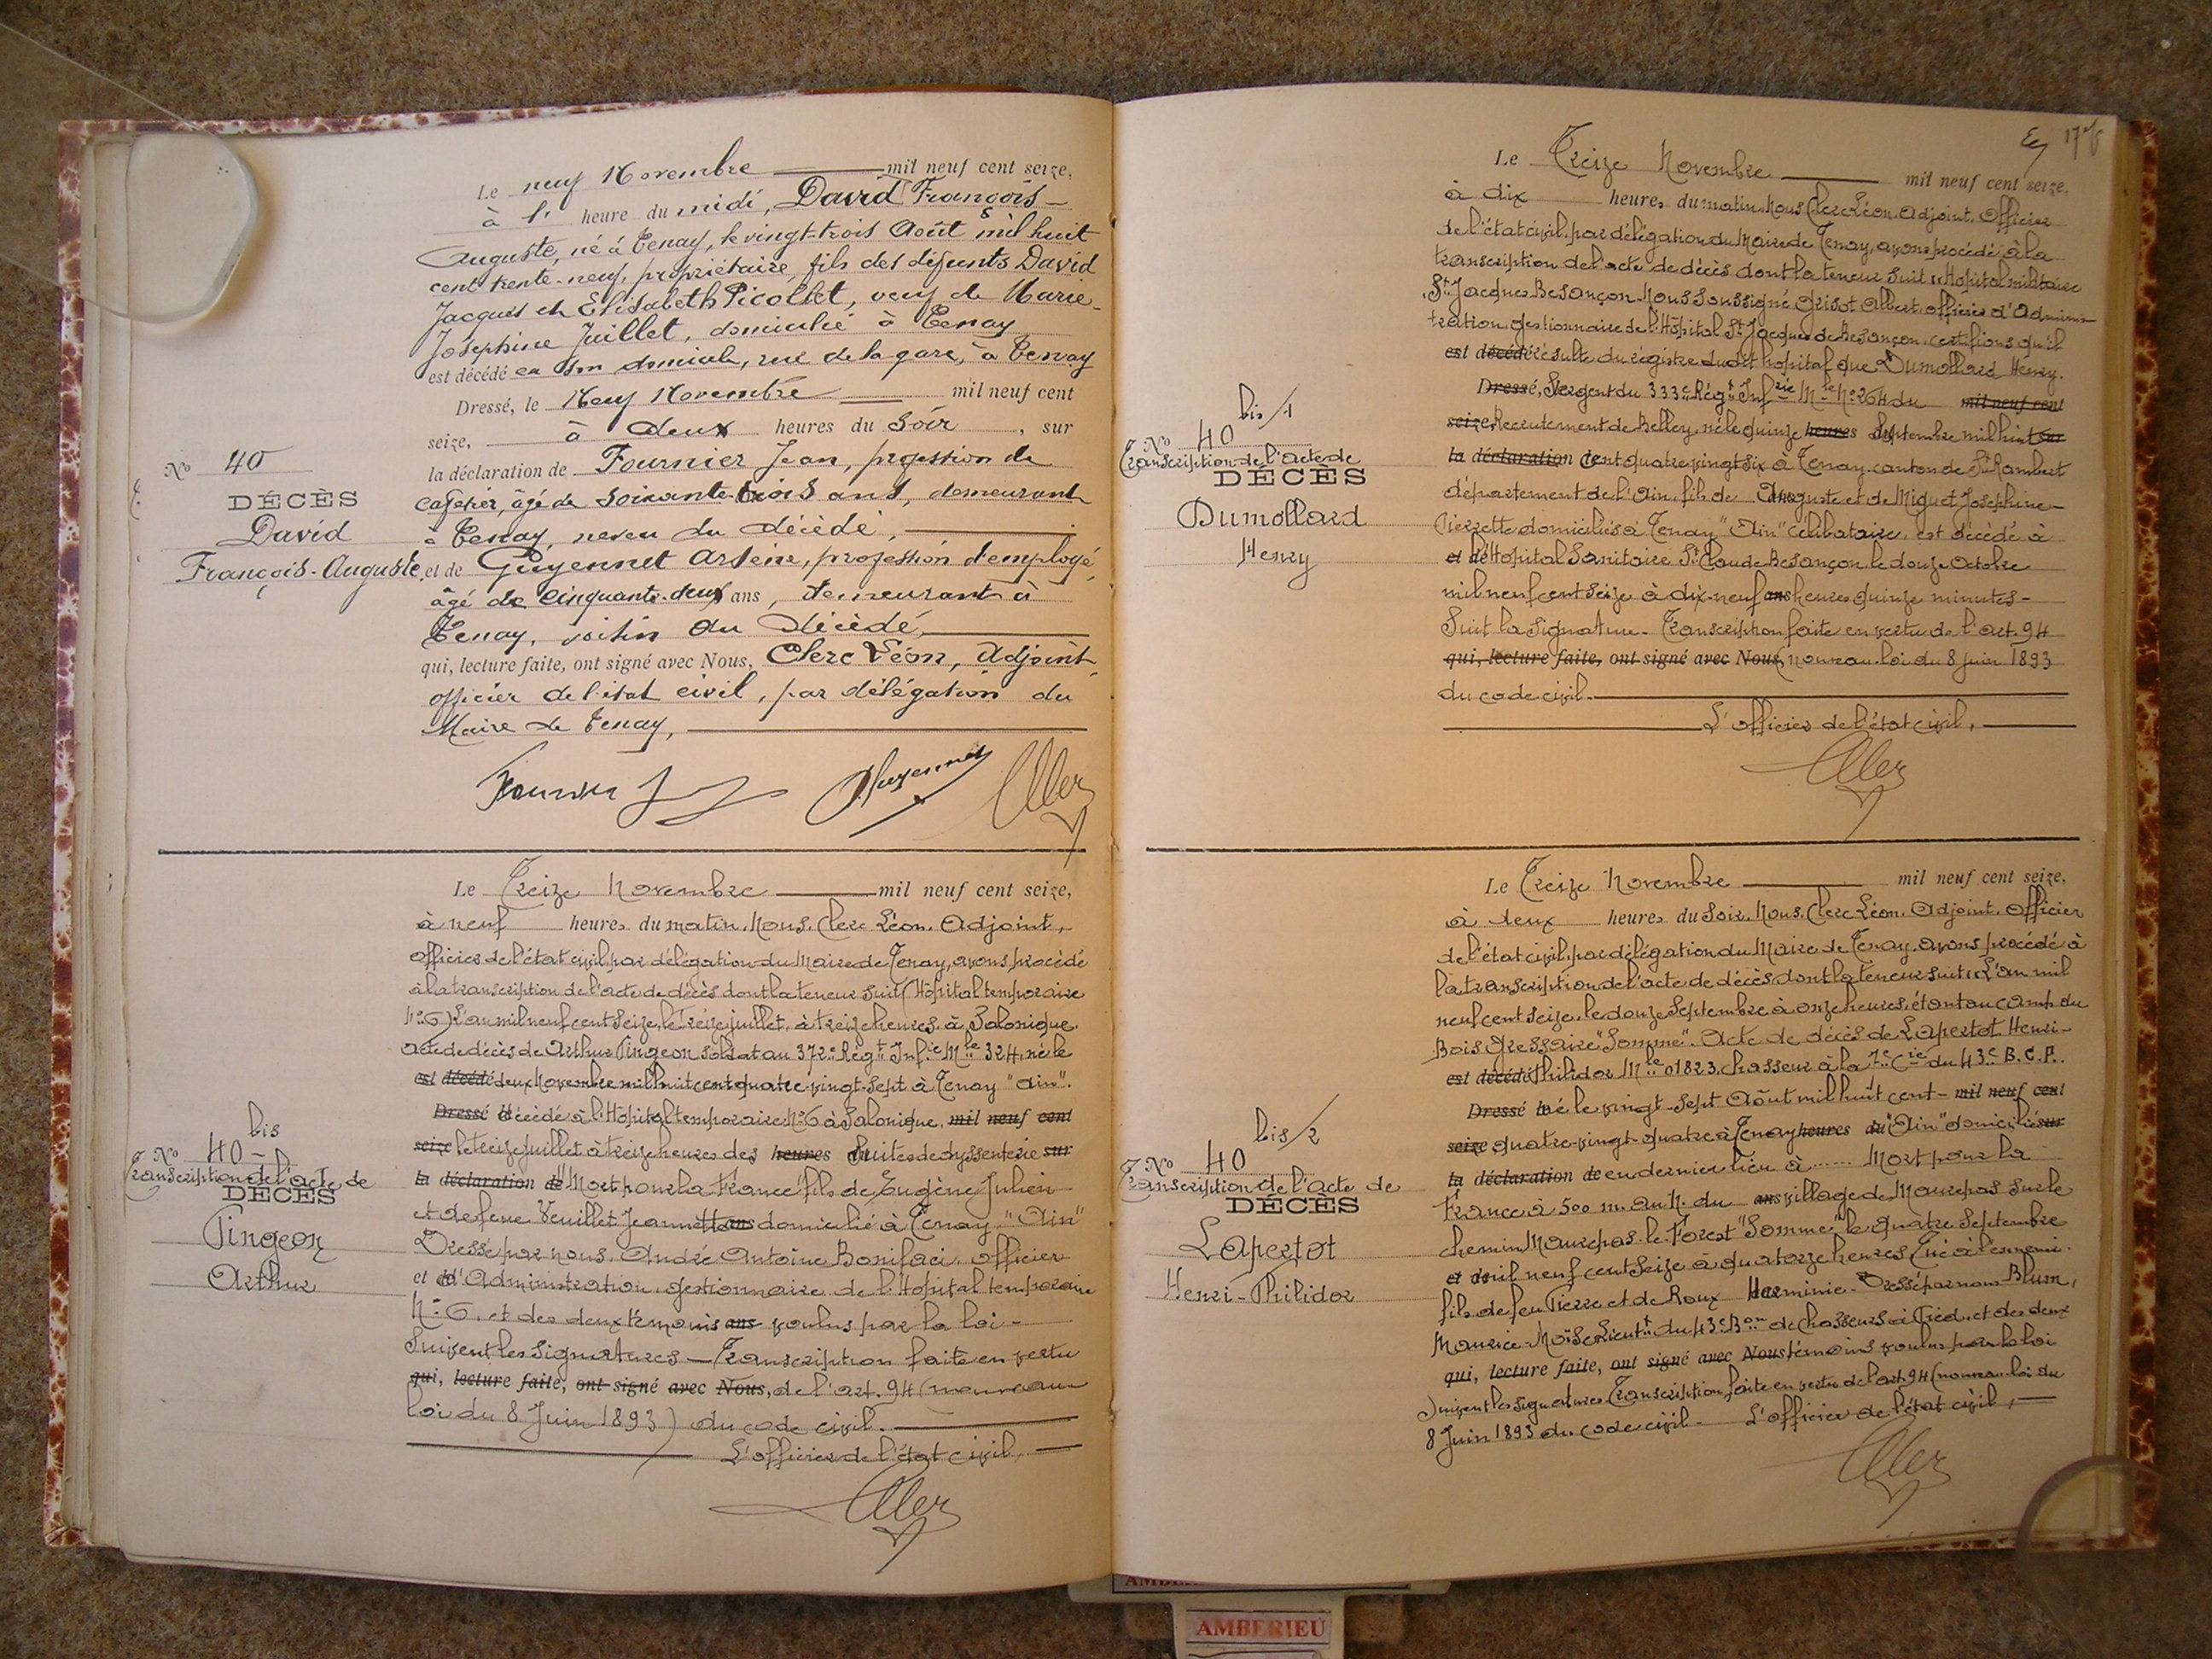 Le neuf Novembre mil neuf cent seize,
à 1 heure du midi, David François-
Auguste, né à Tenay, le vingt-trois Août mil huit
cent trente-neuf, propriétaire, fils des défunts David
Jacques et Elisabeth Picollet, veuf de Marie-
Josephine Juillet, domicilié à Tenay
est décédé en son domicile, rue de la gare, à Tenay
Dressé, le Neuf Novembre mil neuf cent
seize, à deux heures du Soir, sur
la déclaration de Fournier Jean, profession de
cafetier, âgé de soixante-trois ans, demeurant
à Tenay, neveu du décédé,
et de Guyennet Arsène, profession d'employé,
âgé de cinquante-deux ans, demeurant à
Tenay, voisin du décédé,
qui, lecture faite, ont signé avec Nous, Clerc Léon, Adjoint,
officier de l'état civil, par délégation du
Maire de Tenay,
Fournier J Guyennet Clerc
No 40
DÉCÈS
David
François-Auguste
Le Treize Novembre mil neuf cent seize,
à neuf heures du matin. Nous, Clerc Léon, Adjoint,
officier de l'état civil par délégation du Maire de Tenay, avons procédé
à la transcription de l'acte de décès dont la teneur suit (Hôpital temporaire
No 6) L'an mil neuf cent seize, le treize juillet, à treize heures, à Salonique.
Acte de décès de Arthur Pingeon soldat au 372e Régt Infie Mle 324, né le
est décédé deux Novembre mil huit cent quatre-vingt-sept à Tenay "Ain".
Dressé décédé à l'Hôpital temporaire No 6 à Salonique, mil neuf cent
seize le treize juillet à treize heures des heures suites de dyssenterie sur
la déclaration de "Mort pour la France" fils de Eugène Julien
et de feue Veuillet Jeannette ans domicilié à Tenay "Ain"
Dressé par nous, André Antoine Bonifaci, officier
et d'Administration, gestionnaire de l'Hopital temporaire
No 6, et des deux témoins ans voulus par la loi-
Suivent les signatures - Transcription faite en vertu
qui, lecture faite, ont signé avec Nous, de l'art. 94 (nouveau
loi du 8 Juin 1893) du code civil.
L'officier de l'état civil,
Clerc
bis
No 40
Transcription de l'acte de
DÉCÈS
Pingeon
Arthur
176
Le Treize Novembre mil neuf cent seize,
à dix heures du matin Nous Clerc Léon, Adjoint, Officier
de l'état civil par délégation du Maire de Tenay, avons procédé à la
transcription de l'acte de décès dont la teneur suit "Hôpital militaire
St Jacques Besançon. Nous soussigné Grisot Albert, officier d'Adminis-
tration, gestionnaire de l'Hôpital St Jacques de Besançon, certifions qu'il
est décédé résulte du registre dudit hôpital que Dumollard Henry.
Dressé, Sergent du 333e Régt Infrie Mle No 264 du mil neuf cent
seize, Recrutement de Belley, né le quinze heures Septembre mil huit sur
la déclaration cent quatre vingt six à Tenay canton de St Rambert
département de l'Ain, fils de Auguste et de Miguet Josephine-
Pierrette domiciliés à Tenay "Ain" célibataire, est décédé à
et de l'Hopital Sanitaire St Claude Besançon le douze Octobre
mil neuf cent seize à dix-neuf ans heures quinze minutes-
Suit la signature. Transcription faite en vertu de l'art. 94
qui, lecture faite, ont signé avec Nous, nouveau loi du 8 juin 1893
du code civil.
L'officier de l'état civil,
Clerc
bis/1
No 40
Transcription de l'acte de
DÉCÈS
Dumollard
Henry
Le Treize Novembre mil neuf cent seize,
à deux heures du Soir. Nous, Clerc Léon, Adjoint, Officier
de l'état civil par délégation du Maire de Tenay, avons procédé à
la transcription de l'acte de décès dont la teneur suit "L'an mil
neuf cent seize, le douze Septembre à onze heures, étant au camp du
Bois Gressaire "Somme". Acte de décès de Lapertot Henri-
est décédé Philidor Mle 01823, chasseur à la 7e Cie du 43e B.C.P.
Dressé né le vingt-Sept Août mil huit cent- mil neuf cent
seize quatre-vingt-quatre à Tenay heures du "Ain" domicilié sur
la déclaration de en dernier lieu à ...... Mort pour la
France à 500 m. au N. du ans village de Maurepas sur le
chemin Maurepas-le-Forest "Somme" le quatre Septembre
et de mil neuf cent seize à quatorze heures Tué à l'ennemi-
fils de feu Pierre et de Roux Herminie. Dressé par nous Blum,
Maurice Moïse Lieutt du 43e Bon de Chasseurs à Pied, et des deux
qui, lecture faite, ont signé avec Nous témoins voulus par la loi
Suivent les signatures. Transcription faite en vertu de l'art. 94 (nouveau loi du
8 Juin 1893 du code civil- L'officier de l'état civil,
Clerc
bis/2
No 40
Transcription de l'acte de
DÉCÈS
Lapertot
Henri-Philidor
AMBERIEU